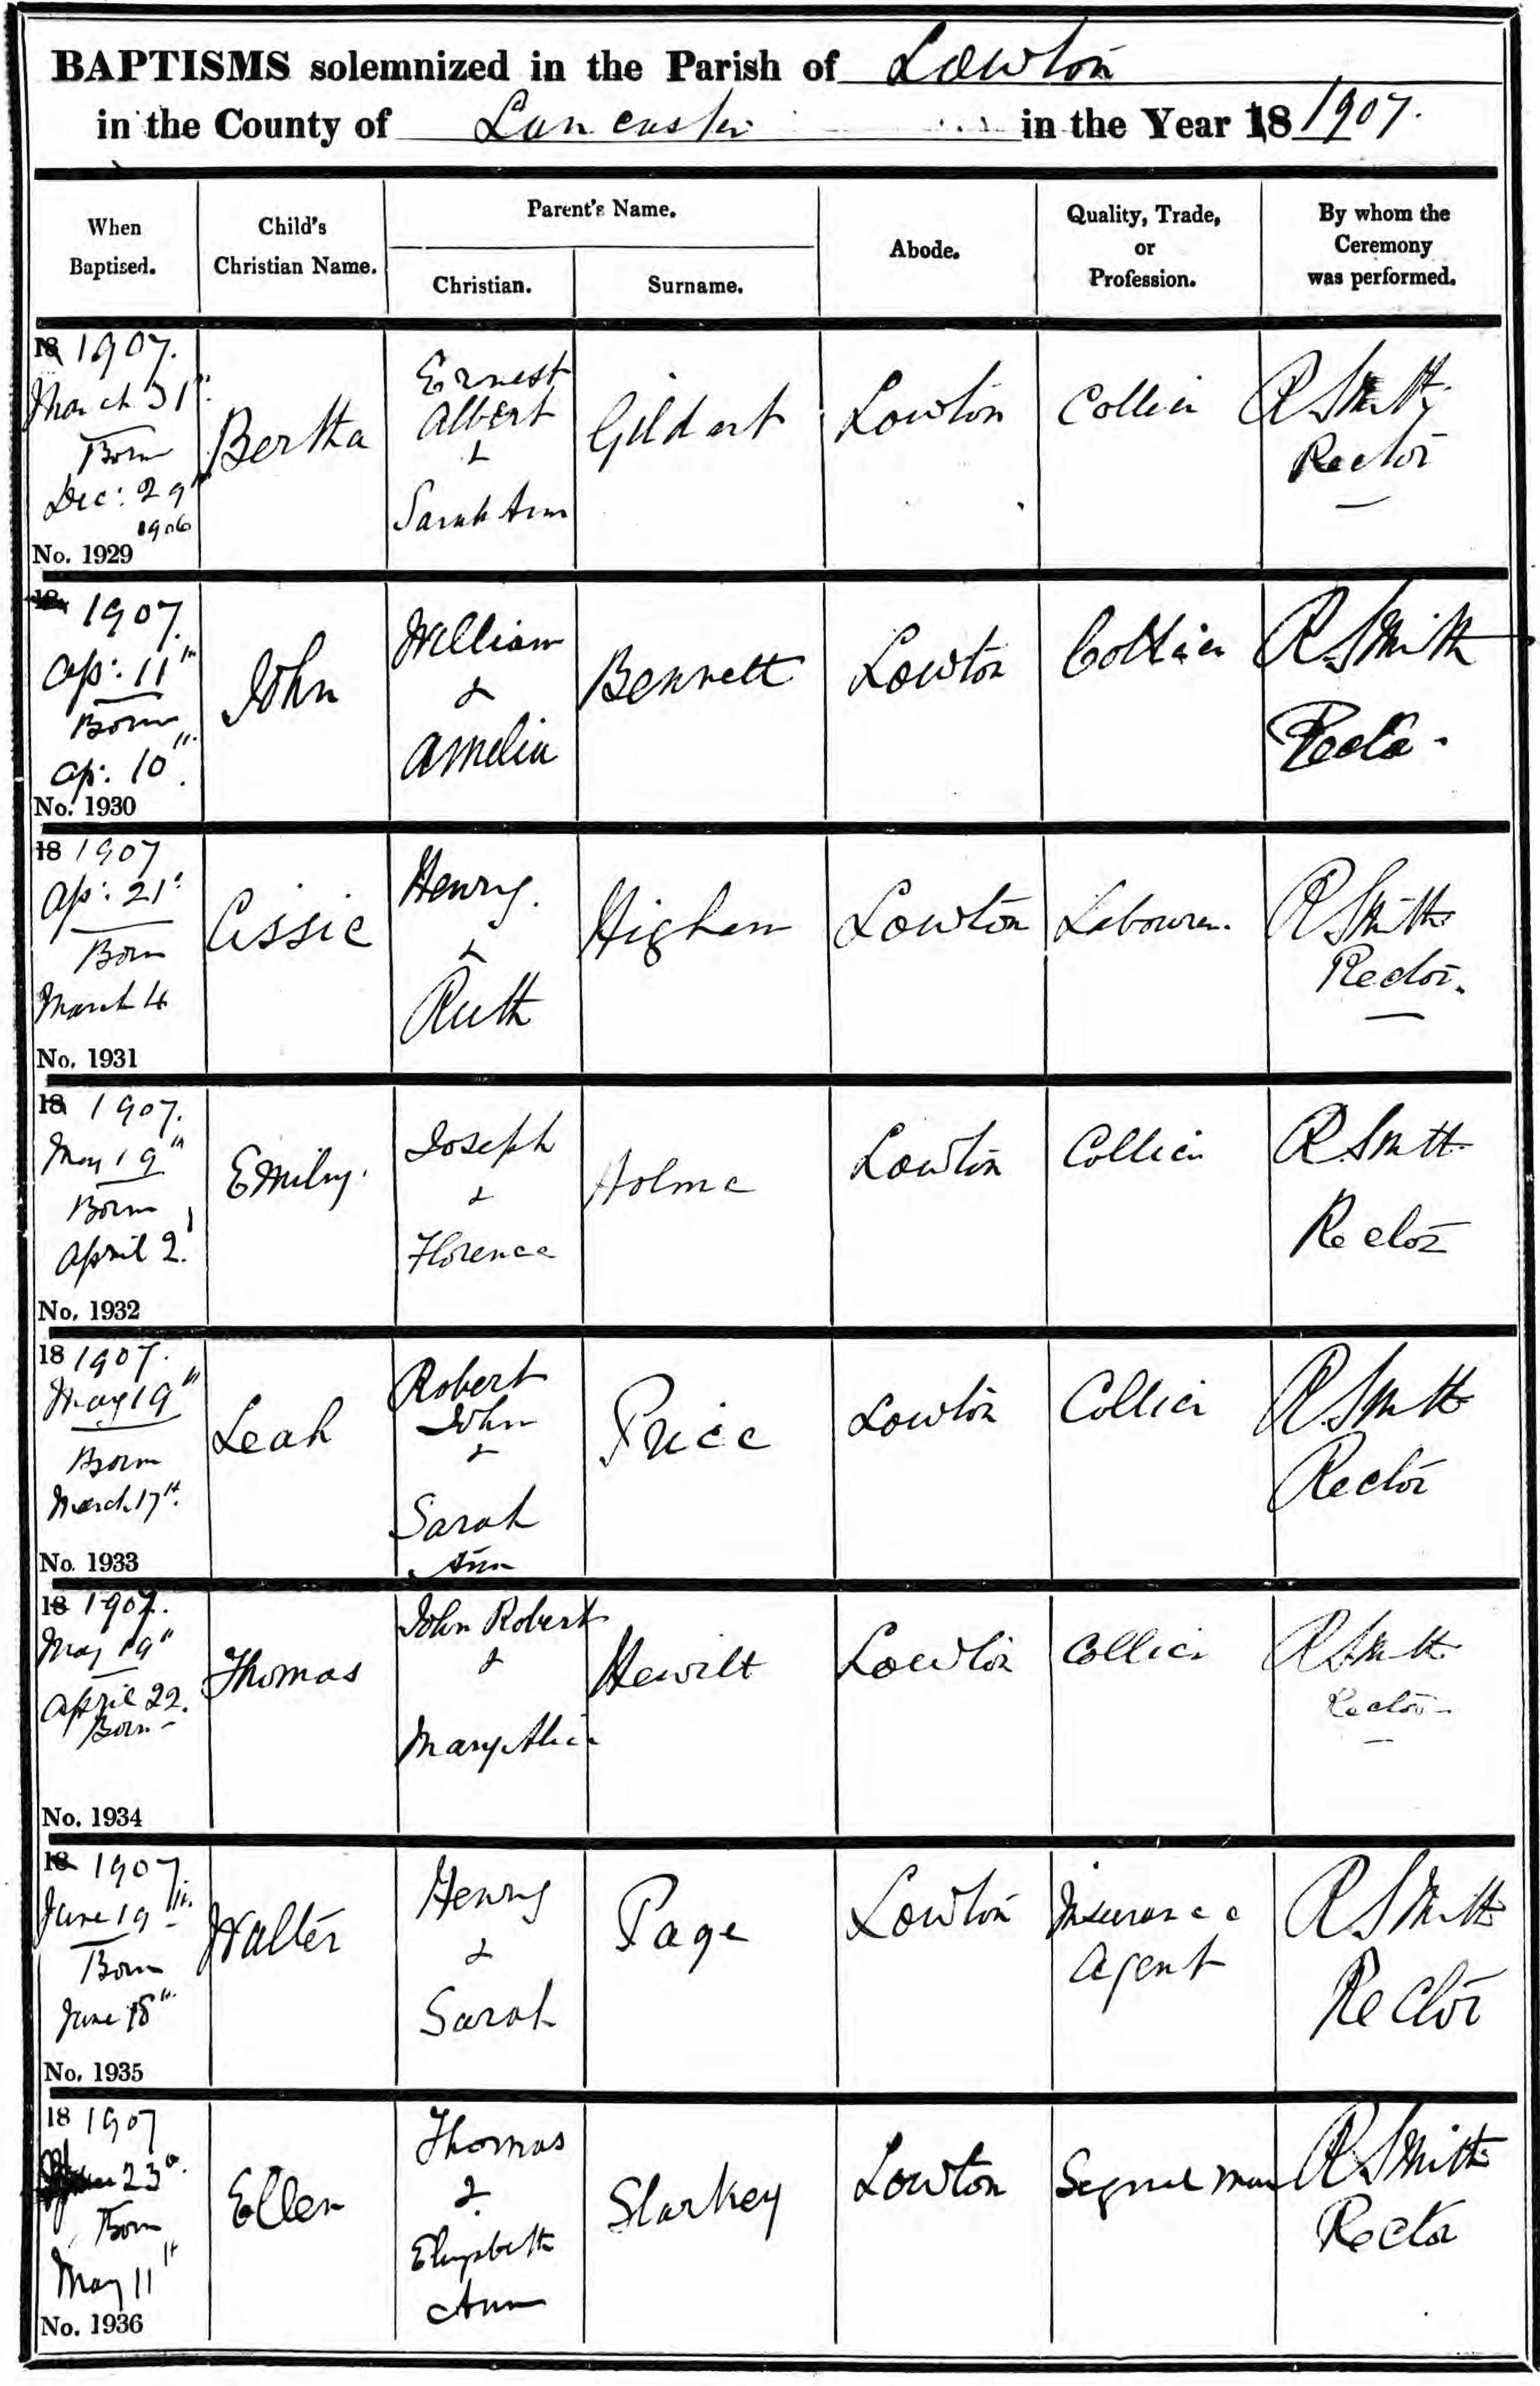 BAPTISMS solemnized in the Parish of Lowton
in the County of Lancaster in the Year 18 1907.
When Baptised.
Child's Christian Name.
Parent's Name.
Christian.
Surname.
Abode.
Quality, Trade, or Profession.
By whom the Ceremony was performed.
18 1907.
March 31st
Born
Dec: 29th
1906
No. 1929
Bertha
Ernest
Albert
&
Sarah Ann
Gildart
Lowton
Collier
R Smith
Rector
18 1907.
Ap: 11th
Born
Ap: 10th.
No. 1930
John
William
&
Amelia
Bennett
Lowton
Collier
R Smith
Rector
18 1907
Ap: 21st
Born
March 4
No. 1931
Cissie
Henry.
&
Ruth
Higham
Lowton
Labourer.
R Smith
Rector.
18 1907.
May 19th
Born
April 2
No. 1932
Emily.
Joseph
&
Florence
Holme
Lowton
Collier
R Smith
Rector
18 1907.
May 19th
Born
March 17th.
No. 1933
Leah
Robert
John
&
Sarah
Ann
Price
Lowton
Collier
R Smith
Rector
18 1907.
May 19th
April 22.
Born
No. 1934
Thomas
John Robert
&
Mary Alice
Hewitt
Lowton
Collier
R Smith
Rector
18 1907
June 19th
Born
June 18th
No. 1935
Walter
Henry
&
Sarah
Page
Lowton
Insurance
Agent
R Smith
Rector
18 1907
June 23rd.
Born
May 11th
No. 1936
Ellen
Thomas
&
Elizabeth
Ann
Starkey
Lowton
Signal man
R Smith
Rector